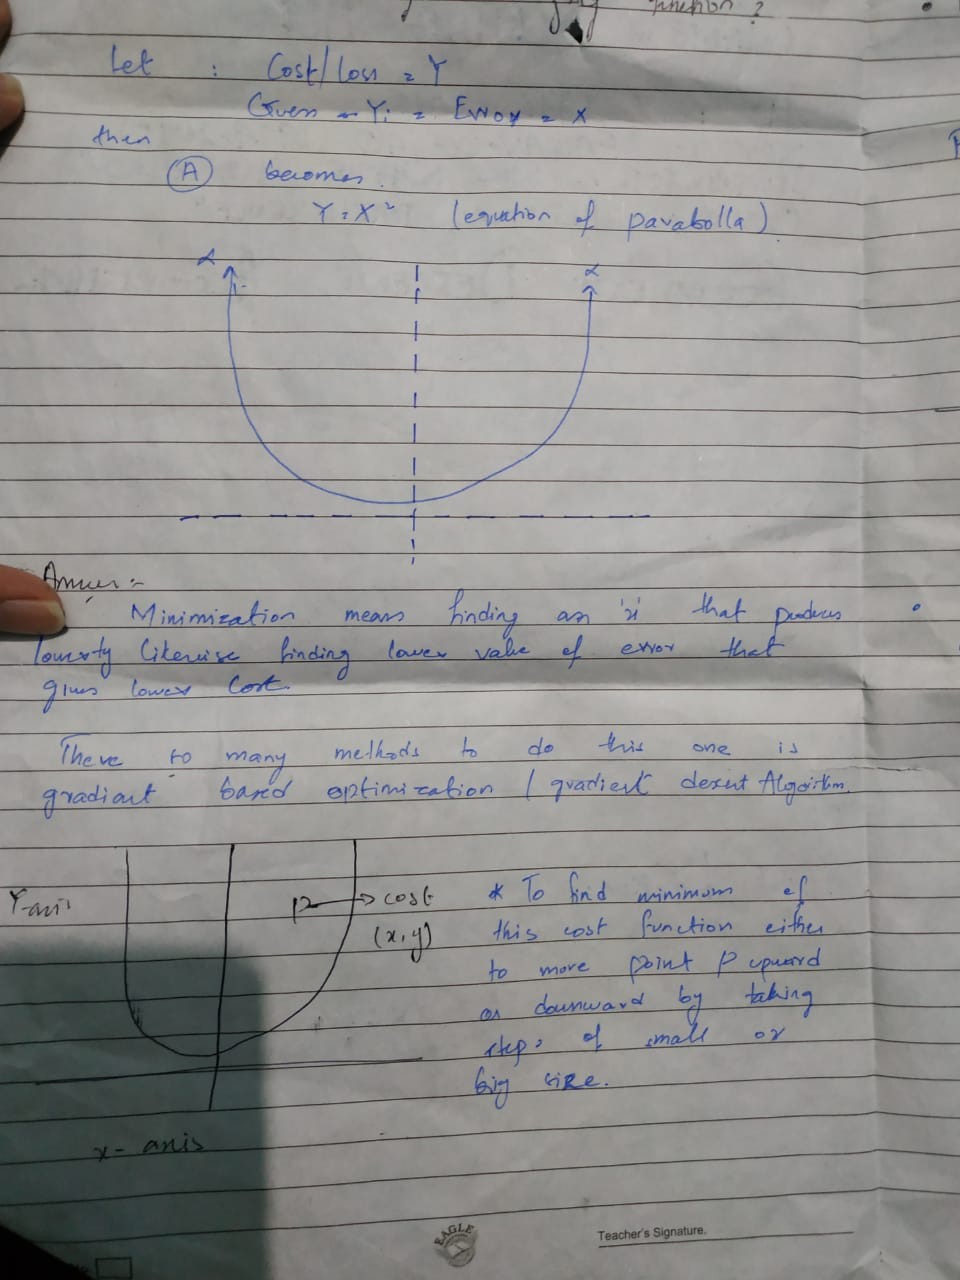 function ?
Let : Cost/Loss = Y
Guess - Yi = Error = X
then
(A) becomes.
Y = X² (equation of parabolla)
α α
Answer :-
Minimization means finding an 'x' that produces
lowest y likewise finding lower value of error that
gives lower cost.
There so many methods to do this one is
gradiant based optimization / gradient desent Algorithm.
Y-axis
P → cost
(x, y)
x - axis
* To find minimum of
this cost function either
to move point P upward
or downward by taking
steps of small or
big size.
EAGLE
Teacher's Signature.